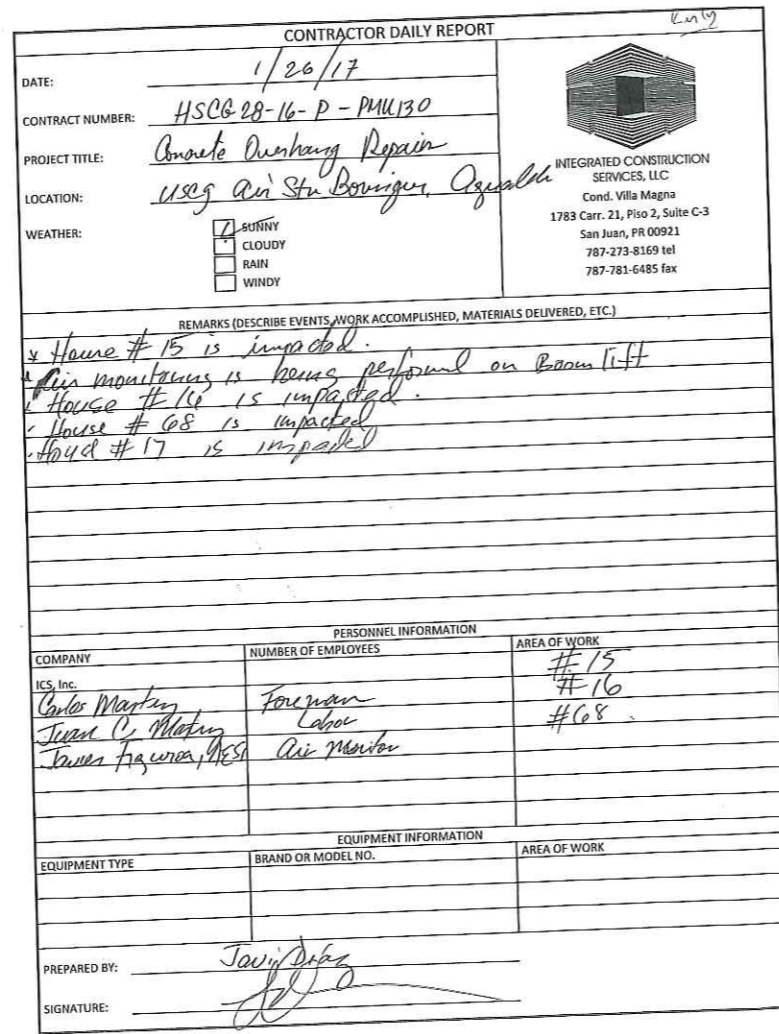 CONTRACTOR DAILY REPORT
DATE: 1/26/17
CONTRACT NUMBER: HSCG28-16-P-PMU130
PROJECT TITLE: Concrete Overhang Repair
LOCATION: USCG Air Stn Borinquen,
WEATHER:
SUNNY
CLOUDY
RAIN
WINDY
INTEGRATED CONSTRUCTION
SERVICES, LLC
Cond. Villa Magna
1783 Carr. 21, Piso 2, Suite C-3
San Juan, PR 00921
787-273-8169 tel
787-781-6485 fax
REMARKS (DESCRIBE EVENTS, WORK ACCOMPLISHED, MATERIALS DELIVERED, ETC.)
* House # 15 is impacted.
* Air monitoring is being performed on Boom lift
House # 16 is impacted.
House # 68 is impacted
# 17 is impacted
PERSONNEL INFORMATION
COMPANY NUMBER OF EMPLOYEES AREA OF WORK
ICS, Inc. #15
Carlos Foreman #16
Juan C. Labor #68
Figueroa, Air Monitor
EQUIPMENT INFORMATION
EQUIPMENT TYPE BRAND OR MODEL NO. AREA OF WORK
PREPARED BY: Díaz
SIGNATURE: